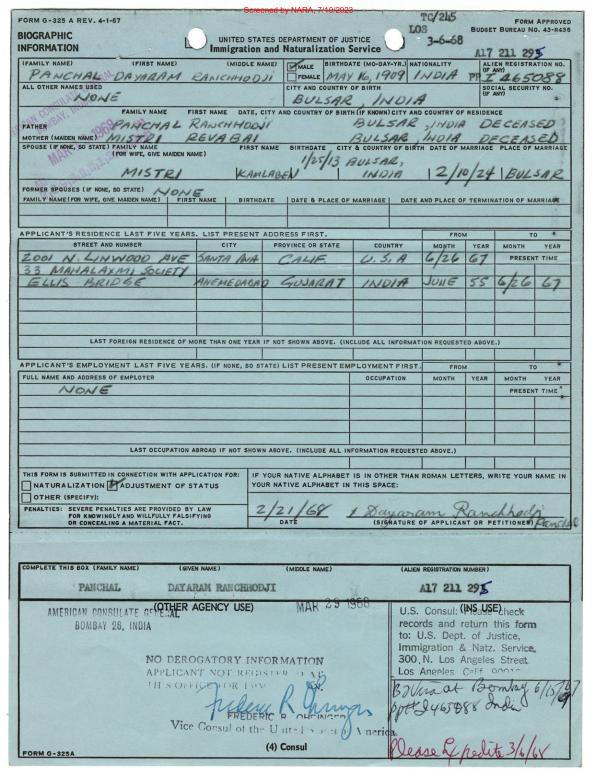 Screened by NARA, 7/19/2023
FORM G-325 A REV. 4-1-67
TC/245
FORM APPROVED
LOS
BUDGET BUREAU NO. 43-R436
BIOGRAPHIC
INFORMATION
UNITED STATES DEPARTMENT OF JUSTICE
Immigration and Naturalization Service
3-6-68
A17 211 295
(FAMILY NAME) (FIRST NAME) (MIDDLE NAME) MALE BIRTHDATE (MO-DAY-YR.) NATIONALITY ALIEN REGISTRATION NO. (IF ANY)
PANCHAL DAYARAM RANCHHODJI FEMALE MAY 16, 1909 INDIA PP I 465088
ALL OTHER NAMES USED CITY AND COUNTRY OF BIRTH SOCIAL SECURITY NO. (IF ANY)
NONE BULSAR, INDIA
FAMILY NAME FIRST NAME DATE, CITY AND COUNTRY OF BIRTH (IF KNOWN) CITY AND COUNTRY OF RESIDENCE
FATHER PANCHAL RANCHHODJI BULSAR, INDIA DECEASED
MOTHER (MAIDEN NAME) MISTRI REVABAI BULSAR, INDIA DECEASED
SPOUSE (IF NONE, SO STATE) FAMILY NAME (FOR WIFE, GIVE MAIDEN NAME) FIRST NAME BIRTHDATE CITY & COUNTRY OF BIRTH DATE OF MARRIAGE PLACE OF MARRIAGE
1/25/13 BULSAR,
MISTRI KAMLABEN INDIA 2/10/24 BULSAR
FORMER SPOUSES (IF NONE, SO STATE) NONE
FAMILY NAME (FOR WIFE, GIVE MAIDEN NAME) FIRST NAME BIRTHDATE DATE & PLACE OF MARRIAGE DATE AND PLACE OF TERMINATION OF MARRIAGE
APPLICANT'S RESIDENCE LAST FIVE YEARS. LIST PRESENT ADDRESS FIRST. FROM TO
STREET AND NUMBER CITY PROVINCE OR STATE COUNTRY MONTH YEAR MONTH YEAR
2001 N. LINWOOD AVE SANTA ANA CALIF U.S.A 6/26 67 PRESENT TIME
33 MAHALAXMI SOCIETY
ELLIS BRIDGE AHEMEDABAD GUJARAT INDIA JUNE 55 6/26 67
LAST FOREIGN RESIDENCE OF MORE THAN ONE YEAR IF NOT SHOWN ABOVE. (INCLUDE ALL INFORMATION REQUESTED ABOVE.)
APPLICANT'S EMPLOYMENT LAST FIVE YEARS. (IF NONE, SO STATE) LIST PRESENT EMPLOYMENT FIRST. FROM TO
FULL NAME AND ADDRESS OF EMPLOYER OCCUPATION MONTH YEAR MONTH YEAR
NONE PRESENT TIME
LAST OCCUPATION ABROAD IF NOT SHOWN ABOVE. (INCLUDE ALL INFORMATION REQUESTED ABOVE.)
THIS FORM IS SUBMITTED IN CONNECTION WITH APPLICATION FOR:
NATURALIZATION ADJUSTMENT OF STATUS
OTHER (SPECIFY):
IF YOUR NATIVE ALPHABET IS IN OTHER THAN ROMAN LETTERS, WRITE YOUR NAME IN
YOUR NATIVE ALPHABET IN THIS SPACE:
PENALTIES: SEVERE PENALTIES ARE PROVIDED BY LAW
FOR KNOWINGLY AND WILLFULLY FALSIFYING
OR CONCEALING A MATERIAL FACT.
2/21/68 x Dayaram Ranchhodji Panchal
DATE (SIGNATURE OF APPLICANT OR PETITIONER)
COMPLETE THIS BOX (FAMILY NAME) (GIVEN NAME) (MIDDLE NAME) (ALIEN REGISTRATION NUMBER)
PANCHAL DAYARAM RANCHHODJI A17 211 295
(OTHER AGENCY USE) MAR 29 1968
AMERICAN CONSULATE GENERAL
BOMBAY 26, INDIA
NO DEROGATORY INFORMATION
APPLICANT NOT REGISTERED AT
THIS OFFICE FOR
FREDERIC R. OHRINGER
Vice Consul of the United States of America
(4) Consul
(INS USE)
U.S. Consul: Please check
records and return this form
to: U.S. Dept. of Justice,
Immigration & Natz. Service,
300 N. Los Angeles Street
Los Angeles Calif. 90012
B2 Visa at Bombay 6/15/67
PP# I 465088 India
Please Expedite 3/6/68
FORM G-325A